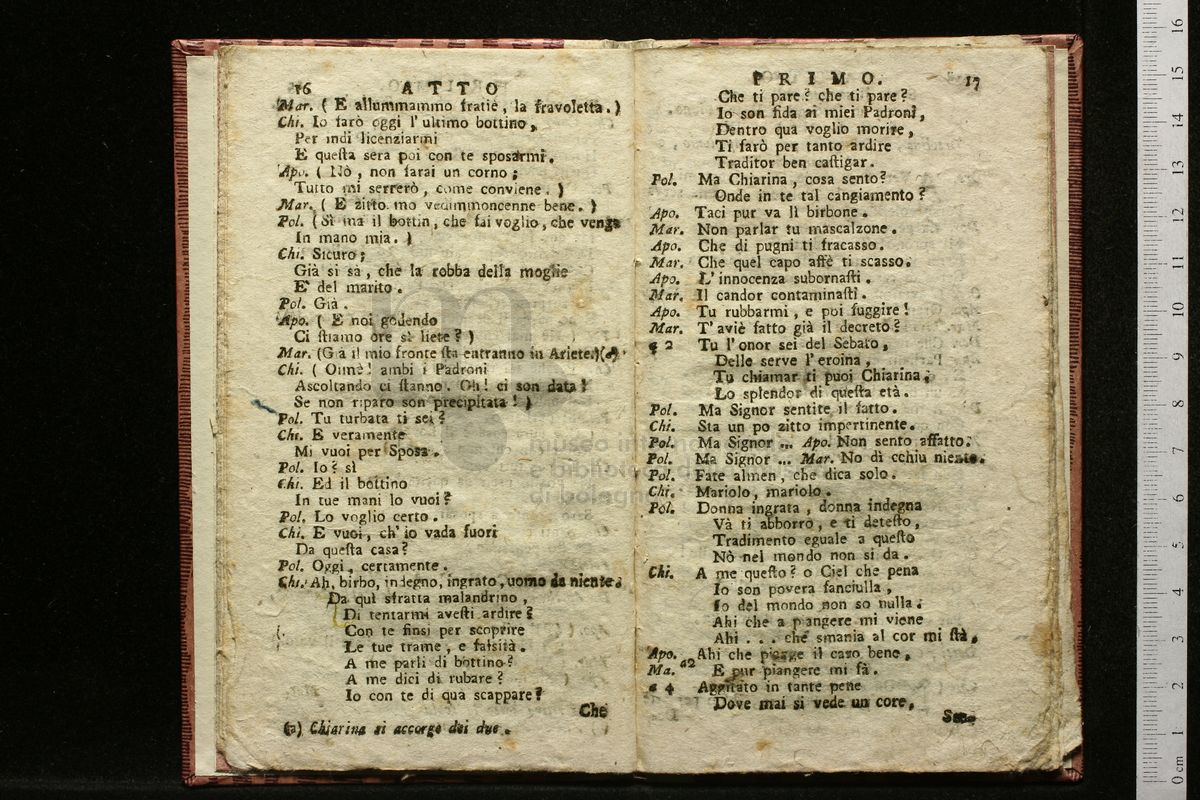 16 ATTO
Mar. ( E allummammo fratiè, la fravoletta. )
Chi. Io farò oggi l'ultimo bottino,
Per indi licenziarmi
E questa sera poi con te sposarmi.
Apo. ( Nò, non farai un corno;
Tutto mi serrerò, come conviene. )
Mar. ( E zitto mo vedimmoncenne bene. )
Pol. (Sì ma il bottin, che fai voglio, che venga
In mano mia. )
Chi. Sicuro;
Già si sà, che la robba della moglie
E' del marito.
Pol. Già.
Apo. ( E noi godendo
Ci stiamo ore sì liete? )
Mar. (Già il mio fronte sta entranno in Ariete.)(a)
Chi. ( Oimè! ambi i Padroni
Ascoltando ci stanno. Oh! ci son data!
Se non riparo son precipitata! )
Pol. Tu turbata ti sei?
Chi. E veramente
Mi vuoi per Sposa.
Pol. Io? sì
Chi. Ed il bottino
In tue mani lo vuoi?
Pol. Lo voglio certo.
Chi. E vuoi, ch'io vada fuori
Da questa casa?
Pol. Oggi, certamente.
Chi. Ah, birbo, indegno, ingrato, uomo da niente.
Da quì sfratta malandrino,
Di tentarmi avesti ardire?
Con te finsi per scoprire
Le tue trame, e falsità.
A me parli di bottino?
A me dici di rubare?
Io con te di qua scappare?
Che
(a) Chiarina si accorge dei due.
PRIMO. 17
Che ti pare? che ti pare?
Io son fida ai miei Padroni,
Dentro qua voglio morire,
Ti farò per tanto ardire
Traditor ben castigar.
Pol. Ma Chiarina, cosa sento?
Onde in te tal cangiamento?
Apo. Taci pur va lì birbone.
Mar. Non parlar tu mascalzone.
Apo. Che di pugni ti fracasso.
Mar. Che quel capo affè ti scasso.
Apo. L'innocenza subornasti.
Mar. Il candor contaminasti.
Apo. Tu rubbarmi, e poi fuggire!
Mar. T'aviè fatto già il decreto?
a 2 Tu l'onor sei del Sebato,
Delle serve l'eroina,
Tu chiamar ti puoi Chiarina;
Lo splendor di questa età.
Pol. Ma Signor sentite il fatto.
Chi. Sta un po zitto impertinente.
Pol. Ma Signor ... Apo. Non sento affatto.
Pol. Ma Signor ... Mar. No dì cchiu niente.
Pol. Fate almen, che dica solo.
Chi. Mariolo, mariolo.
Pol. Donna ingrata, donna indegna
Và ti abborro, e ti detesto,
Tradimento eguale a questo
Nò nel mondo non si da.
Chi. A me questo? o Ciel che pena
Io son povera fanciulla,
Io del mondo non so nulla.
Ahi che a piangere mi viene
Ahi ... che smania al cor mi stà.
Apo. Ahi che piange il caro bene,
Ma. a2 E pur piangere mi fà.
a 4 Aggitato in tante pene
Dove mai si vede un core,